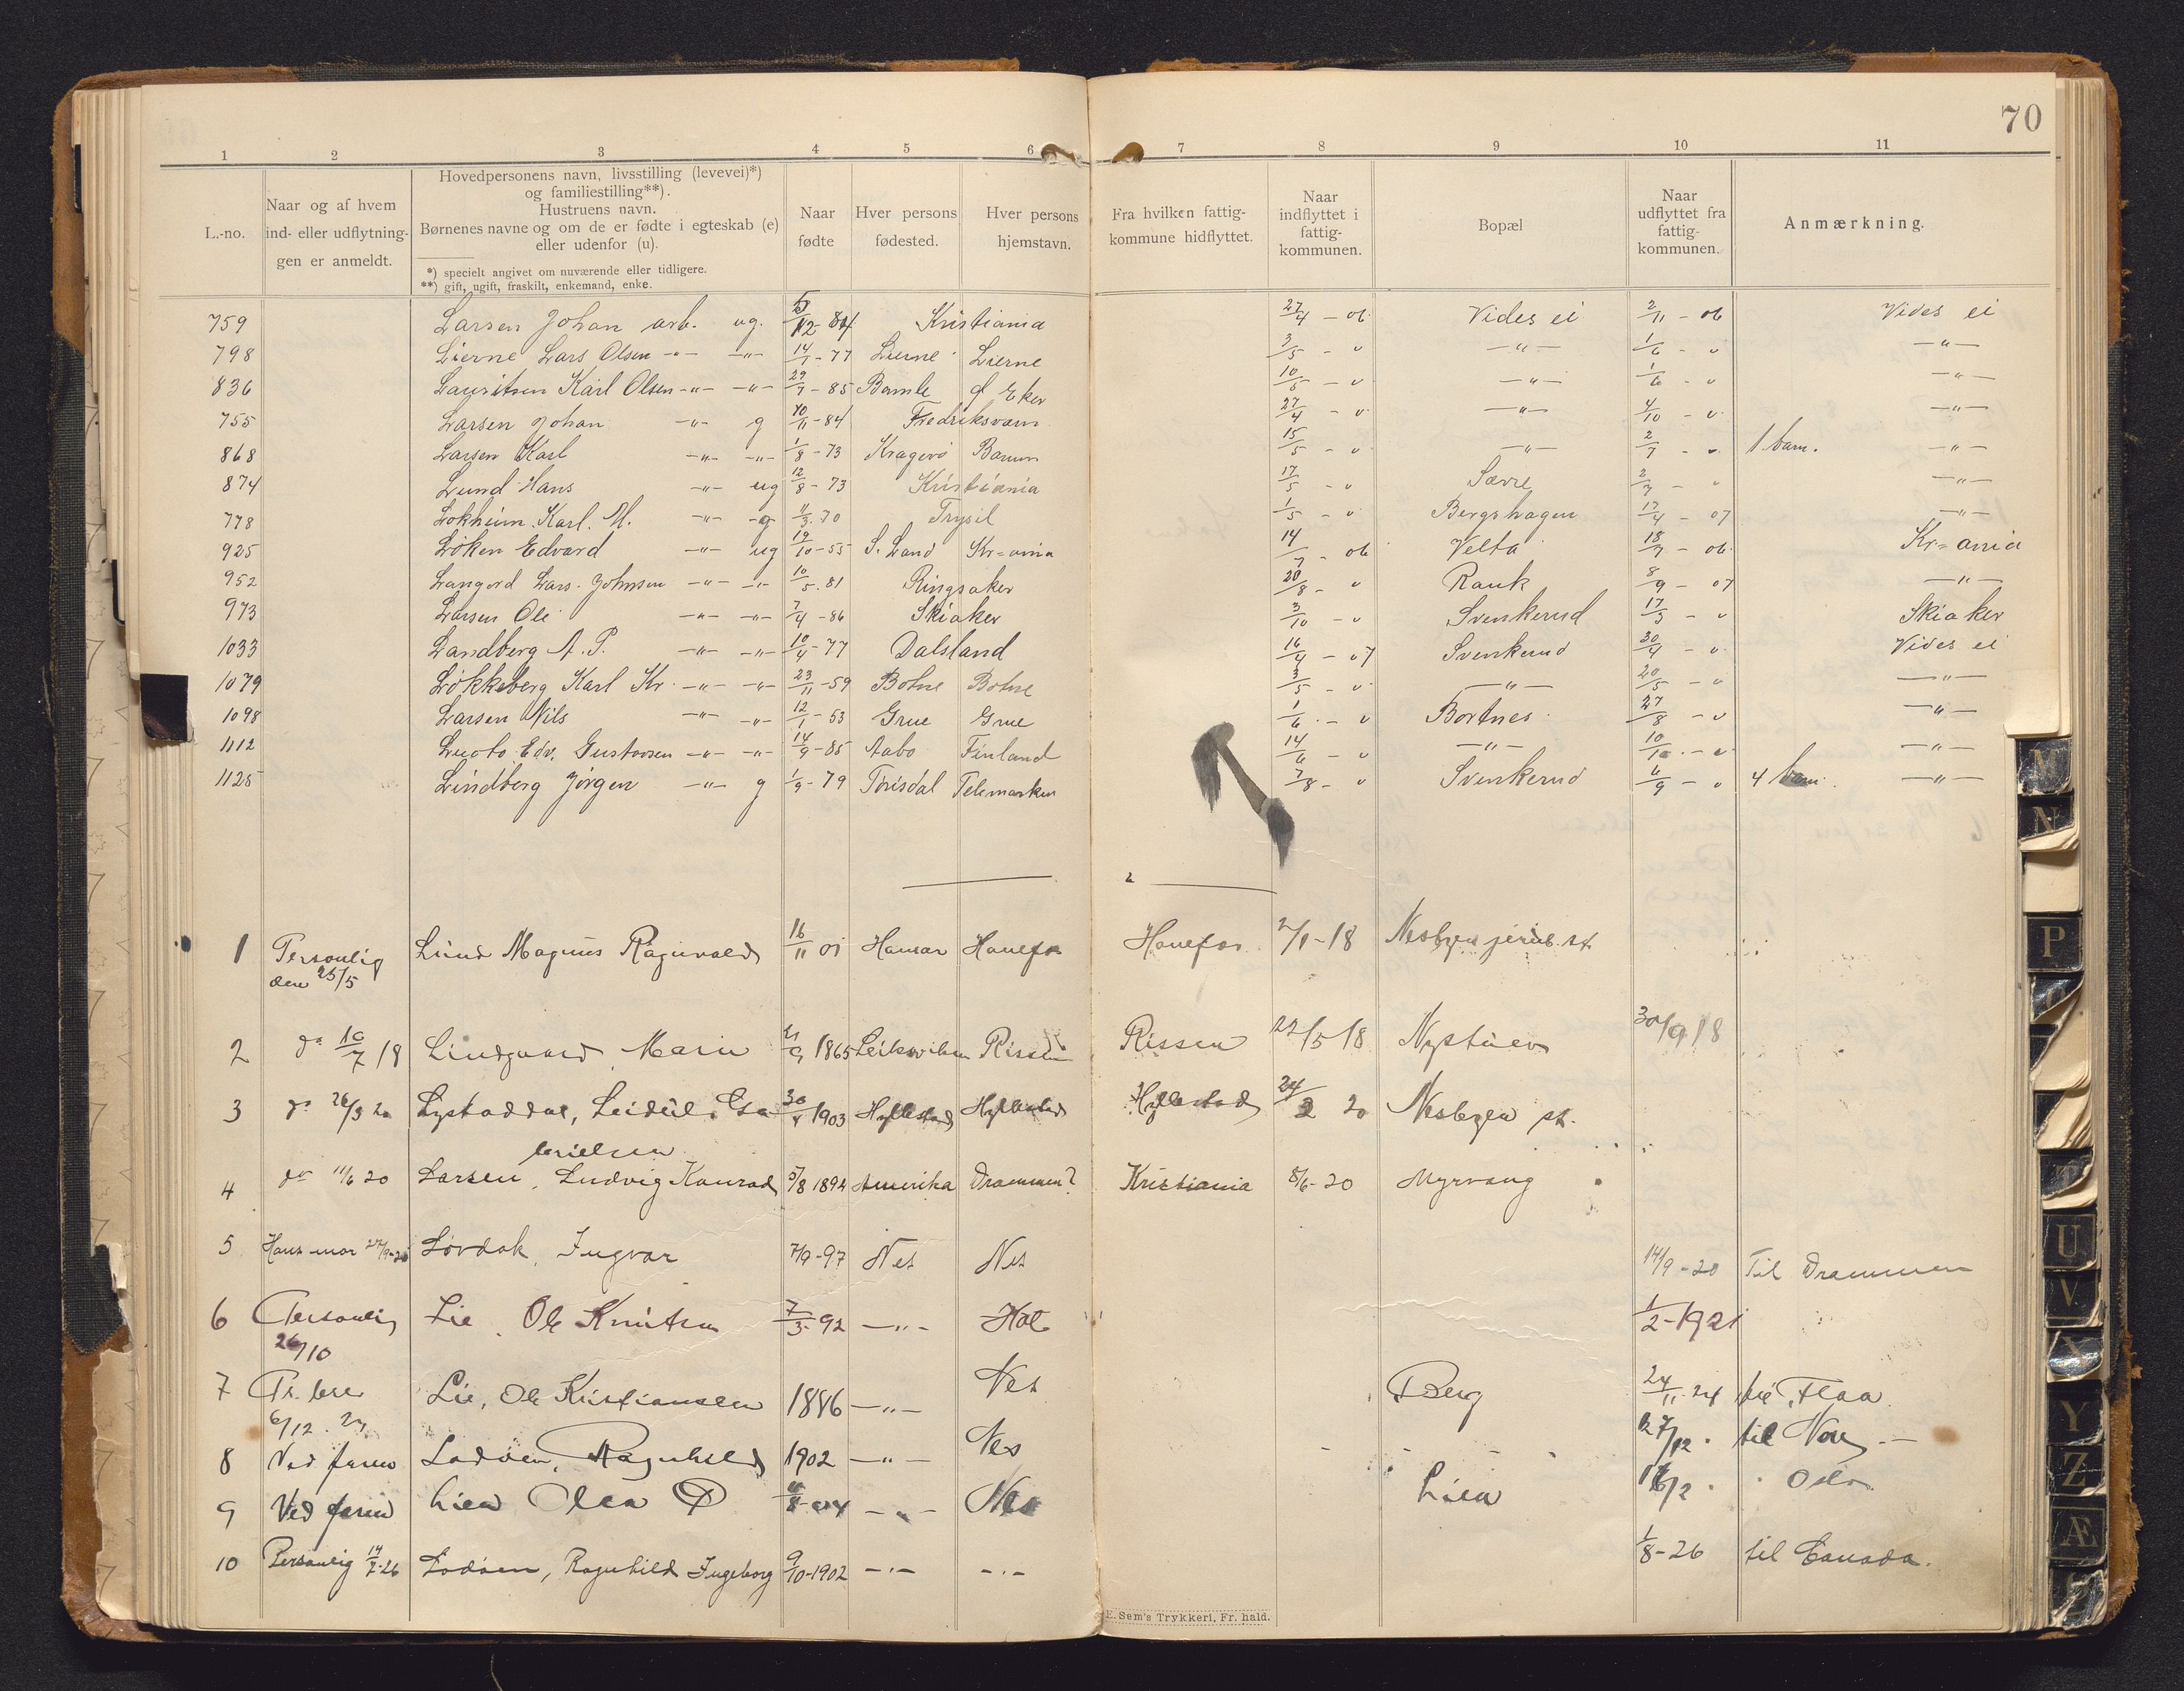 70
1 2 3 4 5 6 7 8 9 10 11
L.-no.
Naar og af hvem
ind- eller udflytnin-
gen er anmeldt.
Hovedpersonens navn, livsstilling (levevei)*)
og familiestilling**).
Hustruens navn.
Børnenes navne og om de er fødte i egteskab (e)
eller udenfor (u).
*) specielt angivet om nuværende eller tidligere.
**) gift, ugift, fraskilt, enkemand, enke.
Naar
fødte
Hver persons
fødested.
Hver persons
hjemstavn.
Fra hvilken fattig-
kommune hidflyttet.
Naar
indflyttet i
fattig-
kommunen.
Bopæl
Naar
udflyttet fra
fattig-
kommunen.
Anmærkning.
759 Larsen Johan arb. ug. Kristiania 27/4 - 06 Vides ei 2/11 - 06 Vides ei
798 Lierne Lars Olsen -"- -"- 14/1 - 77 Lierne Lierne 3/5 - " -"- 1/6 - " -"-
836 Lauritsen Karl Olsen -"- -"- 29/7 - 85 Bamle Ø. Eker 10/5 - " -"- 1/6 - " -"-
755 Larsen Johan -"- g 10/11 - 84 Fredriksværn 27/4 - " -"- 4/10 - " -"-
868 Larsen Karl -"- -"- 1/8 - 73 Kragerø 15/5 - " -"- 2/7 - " 1 barn. -"-
874 Lund Hans -"- ug 12/8 - 73 Kristiania 17/5 - " Sævre 2/7 - " -"-
778 Lokheim Karl. M. -"- g 11/3 - 70 Trysil 1/5 - " Bergshagen 17/4 - 07 -"-
925 Løken Edvard -"- ug 19/10 - 55 S. Land Kr=ania 14/7 - 06 Velta 18/7 - 06 Kr=ania
952 Langerd Lars Johnsen -"- -"- 10/5 . 81 Ringsaker 20/8 - " Rauk 8/9 - 07 -"-
973 Larsen Ole -"- -"- 7/4 - 86 Skiaker 3/10 - " Svenkerud 17/5 - " Skiaker
1033 Landberg A. P. -"- -"- 10/4 - 77 Dalsland 16/4 - 07 Svenkerud 30/4 - " Vides ei
1079 Løkkeberg Karl Kr. -"- -"- 23/11 - 59 Botne Botne 3/5 - " -"- 20/5 - " -"-
1098 Larsen Nils -"- -"- 12/1 - 53 Grue Grue 1/6 - " Bortnes 27/8 - " -"-
1112 Luoto Edv. Gustavsen -"- -"- 14/9 - 85 Aabo Finland 14/6 - " -"- 10/10 - " -"-
1125 Lindberg Jørgen -"- g 1/9 - 79 Tørisdal Telemarken 7/8 - " Svenkerud 6/9 - " 4 barn. -"-
1 Personlig Lund Magnus Ragnvald 16/11 01 Hamar Hønefos Hønefos 2/1 - 18 Nesbyen jernb. st.
den 25/5
2 do 10/7 18 Lindgaard Marie 1865 Leiksviken Rissen Rissen 22/5 18 Nystuen 30/9 18
3 do 26/3 20 Lystaddal, Leidul. Ga 30/4 1903 Hyllestad Hyllestad Hyllestad 24/2 20 Nesbyen st.
brielsen
4 do 11/6 20 Larsen, Ludvig Konrad 5/8 1894 Amerika Drammen? Kristiania 8/6 - 20 Myrvang
5 Hans mor 27/9-20 Løvdok, Ingvar 7/9 - 97 Nes Nes 14/9 - 20 Til Drammen
6 Personlig Lie, Ole Knutsen 7/3 - 92 -"- Hol 1/2 - 1921
26/10
7 Lie, Ole Kristiansen 1886 -"- Nes Berg 24/11 . 24 Flaa
6/12 . 24
8 Ladøen, Ragnhild 1902 -"- Nes 27/12 . til
9 Lien Olea -"- Nes Lien Oslo
10 Personlig 14/7-26 Ladøen, Ragnhild Ingeborg 9/10 - 1902 -"- -"- 1/8 - 26 til Canada.
E. Sem's Trykkeri, Fr. hald.
M
N
P
U
V
X
Y
Z
Æ